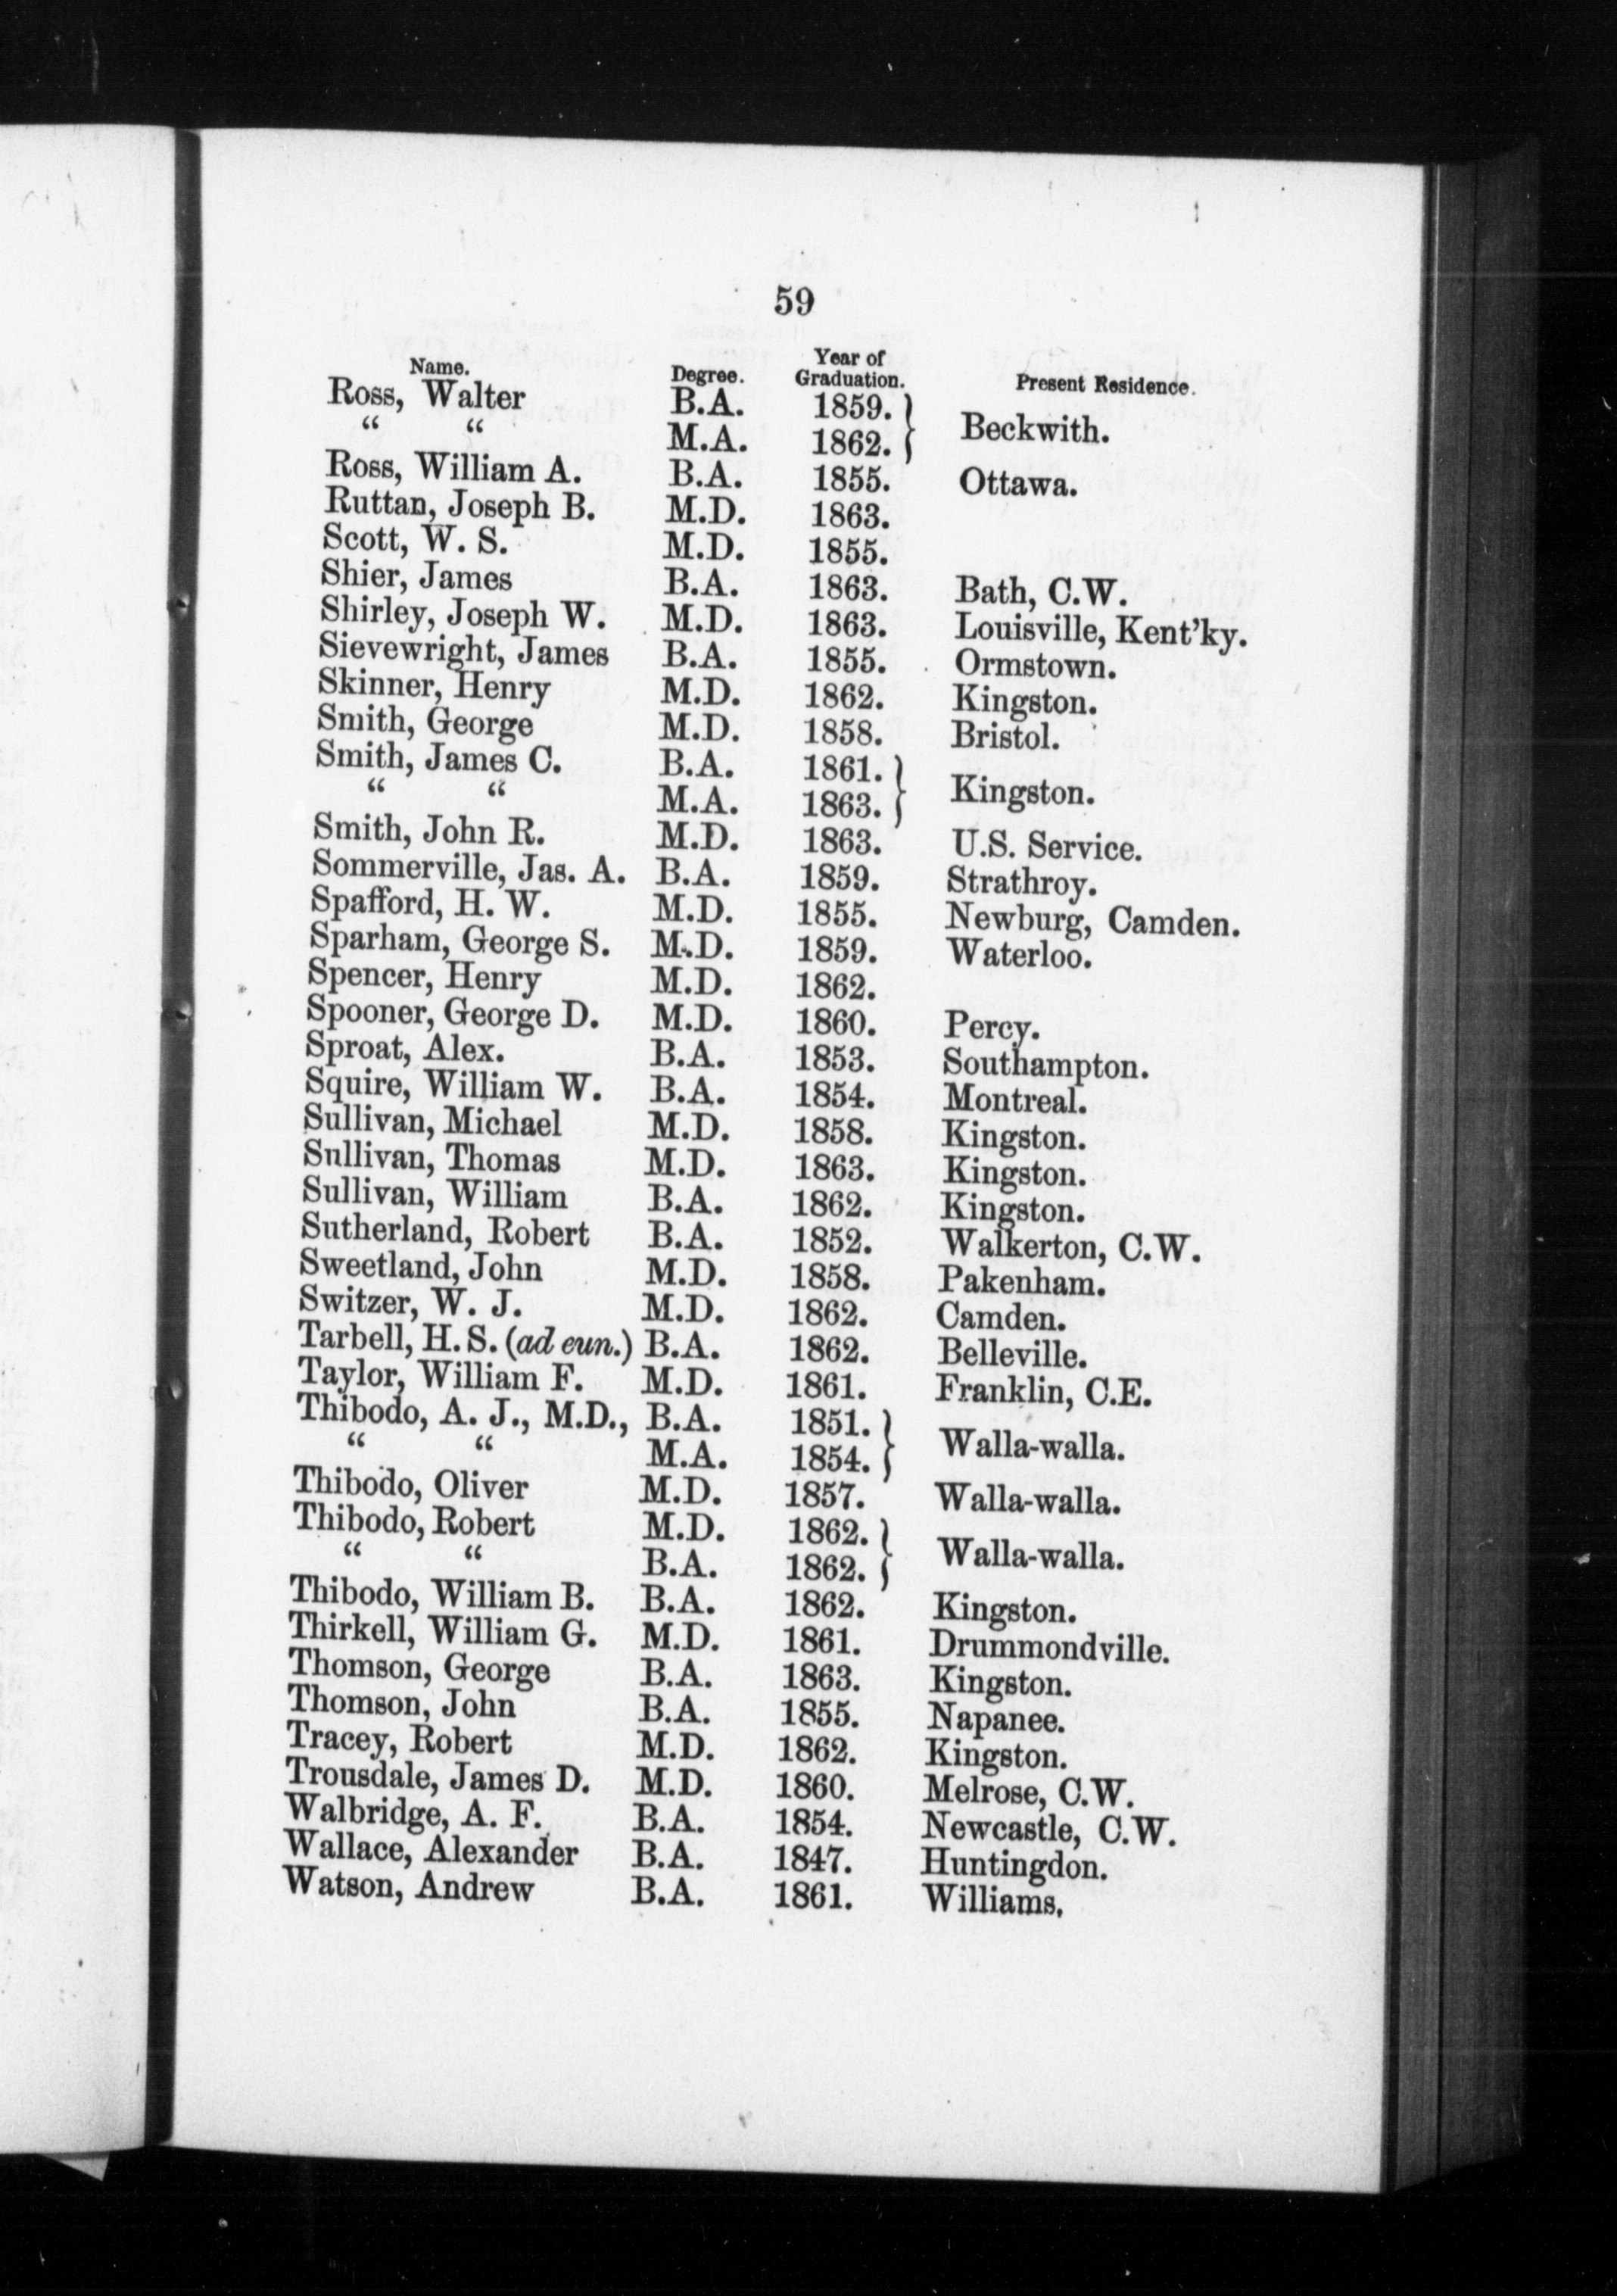 59
Name. Degree. Year of Graduation. Present Residence.
Ross, Walter B.A. 1859. } Beckwith.
“ “ M.A. 1862. }
Ross, William A. B.A. 1855. Ottawa.
Ruttan, Joseph B. M.D. 1863.
Scott, W. S. M.D. 1855.
Shier, James B.A. 1863. Bath, C.W.
Shirley, Joseph W. M.D. 1863. Louisville, Kent’ky.
Sievewright, James B.A. 1855. Ormstown.
Skinner, Henry M.D. 1862. Kingston.
Smith, George M.D. 1858. Bristol.
Smith, James C. B.A. 1861. } Kingston.
“ “ M.A. 1863. }
Smith, John R. M.D. 1863. U.S. Service.
Sommerville, Jas. A. B.A. 1859. Strathroy.
Spafford, H. W. M.D. 1855. Newburg, Camden.
Sparham, George S. M.D. 1859. Waterloo.
Spencer, Henry M.D. 1862.
Spooner, George D. M.D. 1860. Percy.
Sproat, Alex. B.A. 1853. Southampton.
Squire, William W. B.A. 1854. Montreal.
Sullivan, Michael M.D. 1858. Kingston.
Sullivan, Thomas M.D. 1863. Kingston.
Sullivan, William B.A. 1862. Kingston.
Sutherland, Robert B.A. 1852. Walkerton, C.W.
Sweetland, John M.D. 1858. Pakenham.
Switzer, W. J. M.D. 1862. Camden.
Tarbell, H. S. (ad eun.) B.A. 1862. Belleville.
Taylor, William F. M.D. 1861. Franklin, C.E.
Thibodo, A. J., M.D., B.A. 1851. } Walla-walla.
“ “ M.A. 1854. }
Thibodo, Oliver M.D. 1857. Walla-walla.
Thibodo, Robert M.D. 1862. } Walla-walla.
“ “ B.A. 1862. }
Thibodo, William B. B.A. 1862. Kingston.
Thirkell, William G. M.D. 1861. Drummondville.
Thomson, George B.A. 1863. Kingston.
Thomson, John B.A. 1855. Napanee.
Tracey, Robert M.D. 1862. Kingston.
Trousdale, James D. M.D. 1860. Melrose, C.W.
Walbridge, A. F. B.A. 1854. Newcastle, C.W.
Wallace, Alexander B.A. 1847. Huntingdon.
Watson, Andrew B.A. 1861. Williams.